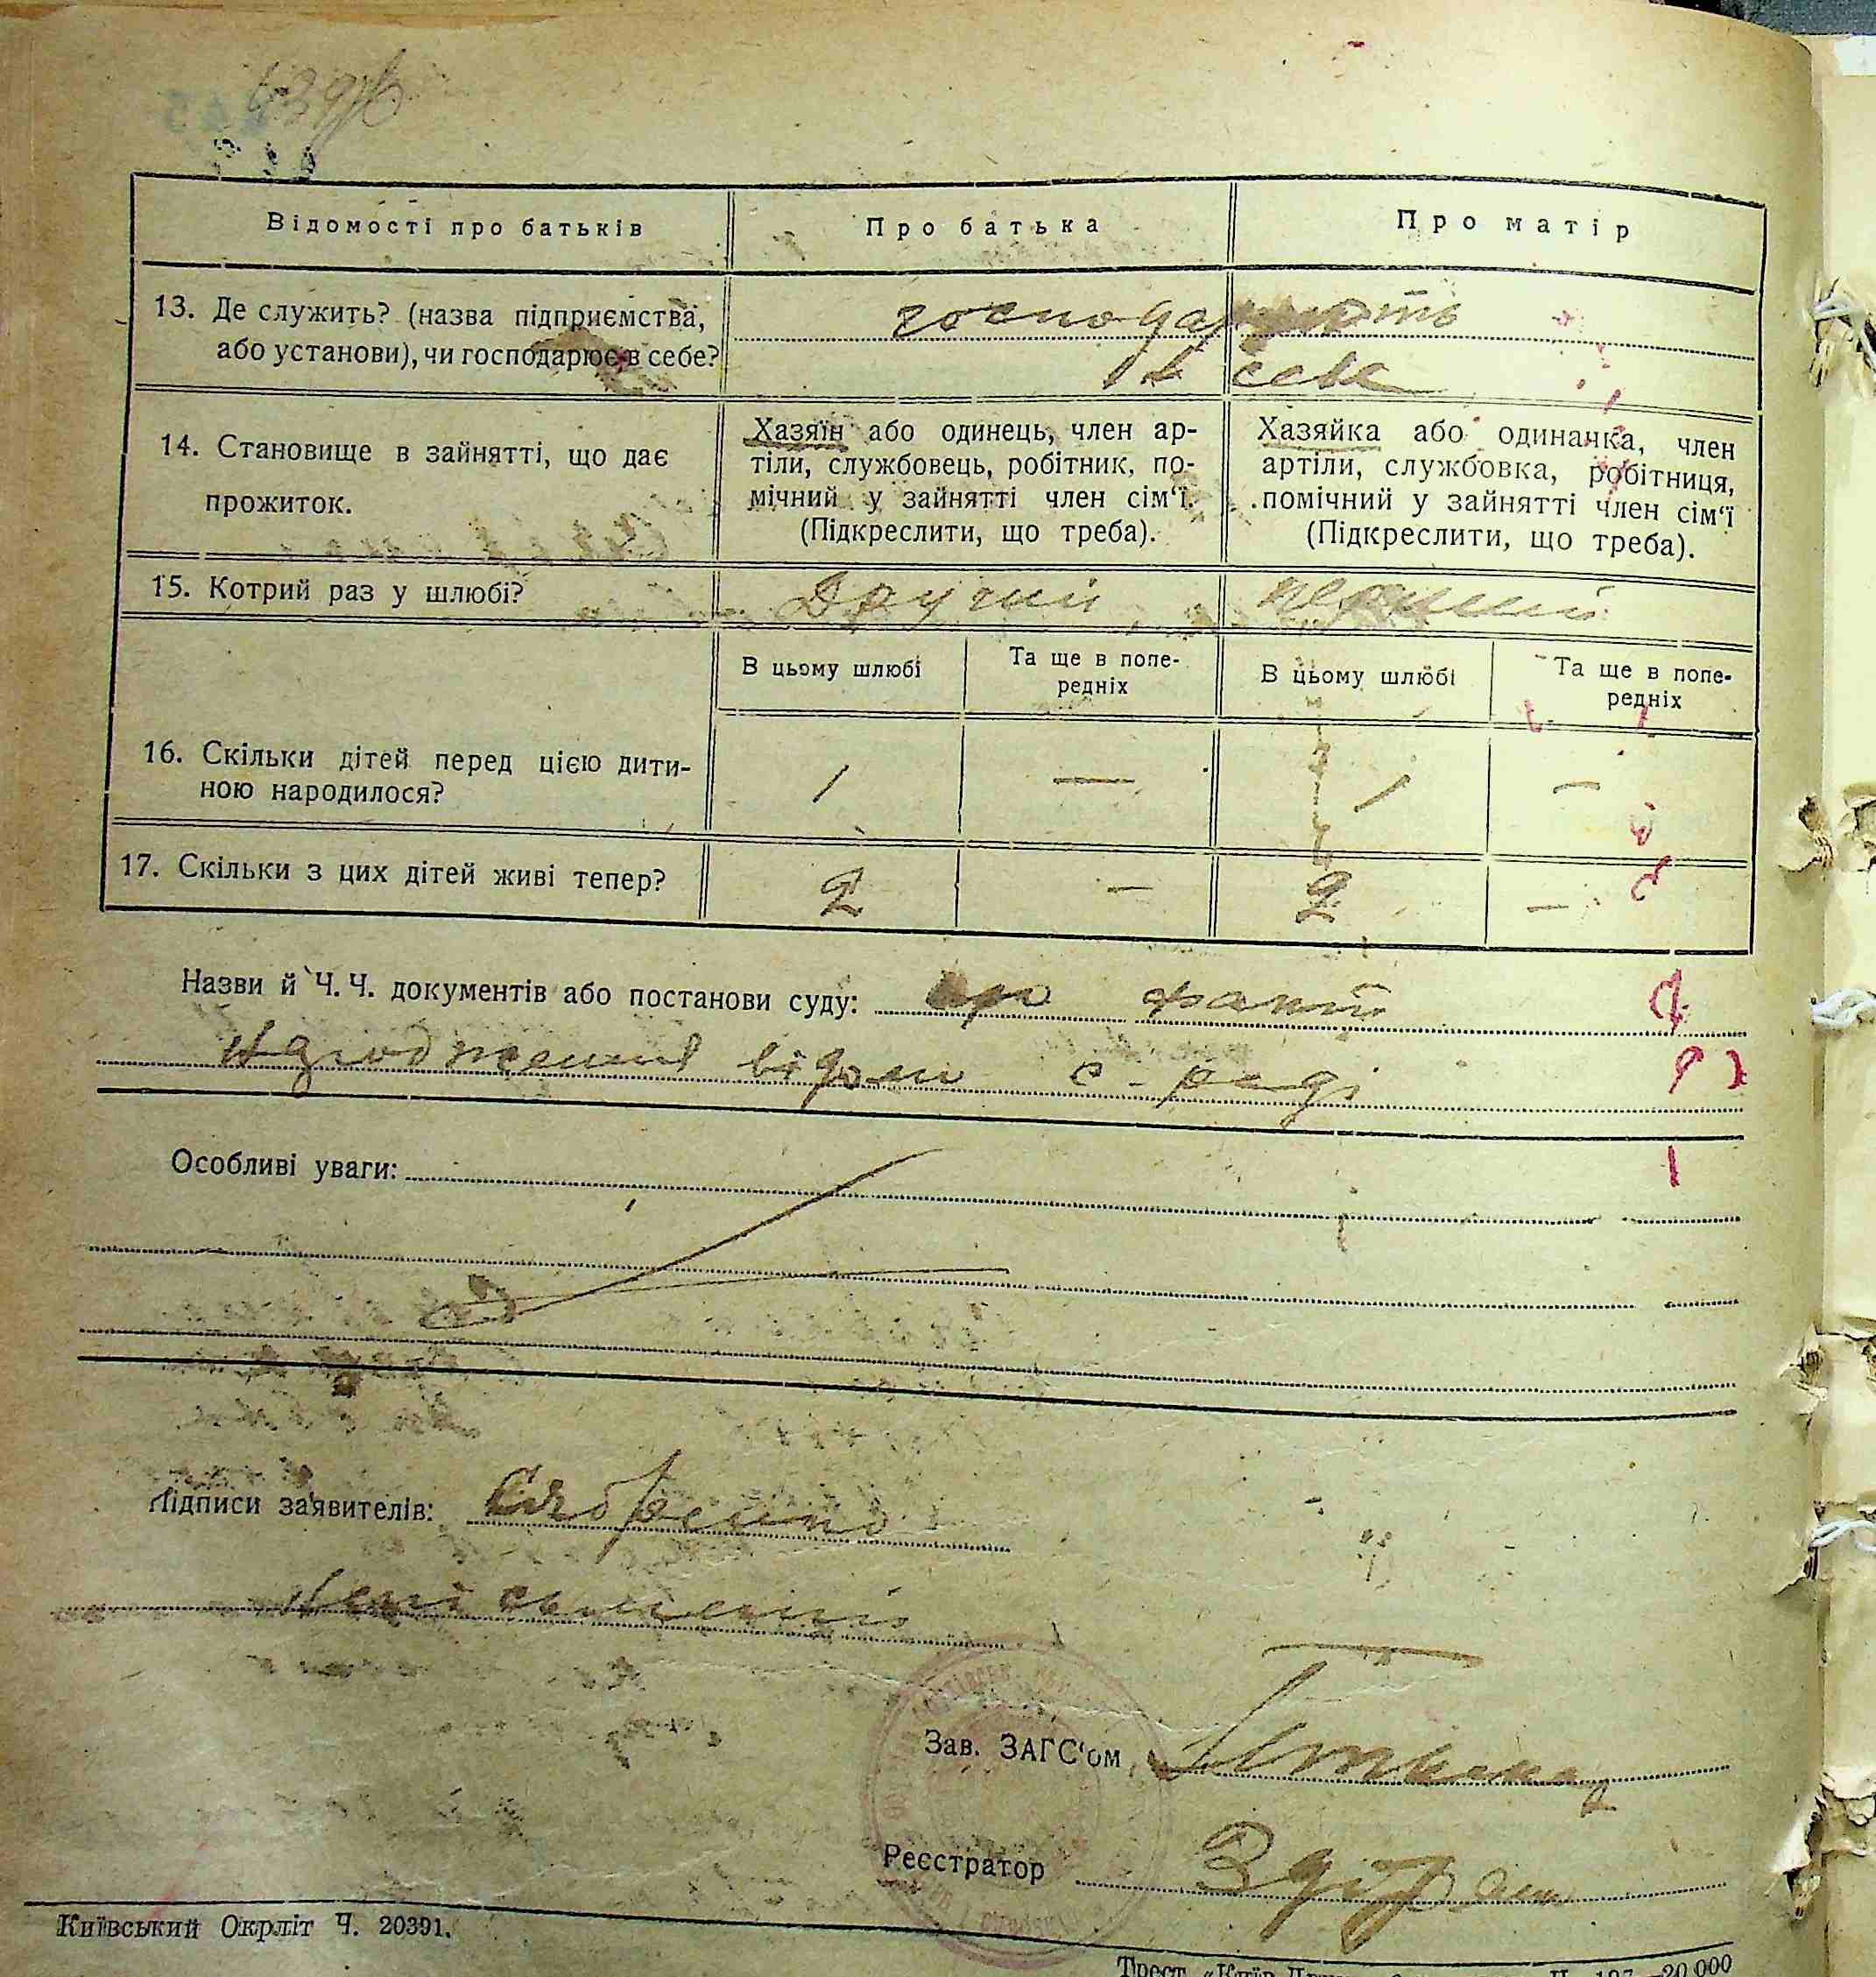 Відомості про батьків
Про батька
Про матір
13. Де служить? (назва підприємства,
або установи), чи господарює в себе?
господарюють
в себе
14. Становище в зайнятті, що дає
прожиток.
Хазяїн або одинець, член ар-
тіли, службовець, робітник, по-
мічний у зайнятті член сім'ї.
(Підкреслити, що треба).
Хазяйка або одиначка, член
артіли, службовка, робітниця,
помічний у зайнятті член сім'ї
(Підкреслити, що треба).
15. Котрий раз у шлюбі?
Другий
перший
В цьому шлюбі
Та ще в попе-
редніх
В цьому шлюбі
Та ще в попе-
редніх
16. Скільки дітей перед цією дити-
ною народилося?
1 — 1 —
17. Скільки з цих дітей живі тепер?
2 — 2 —
Назви й Ч. Ч. документів або постанови суду: про факт
відом с-раді
Особливі уваги:
Підписи заявителів:
Зав. ЗАГС'ом
Реєстратор
Київський Окрліт Ч. 20391.
20.000